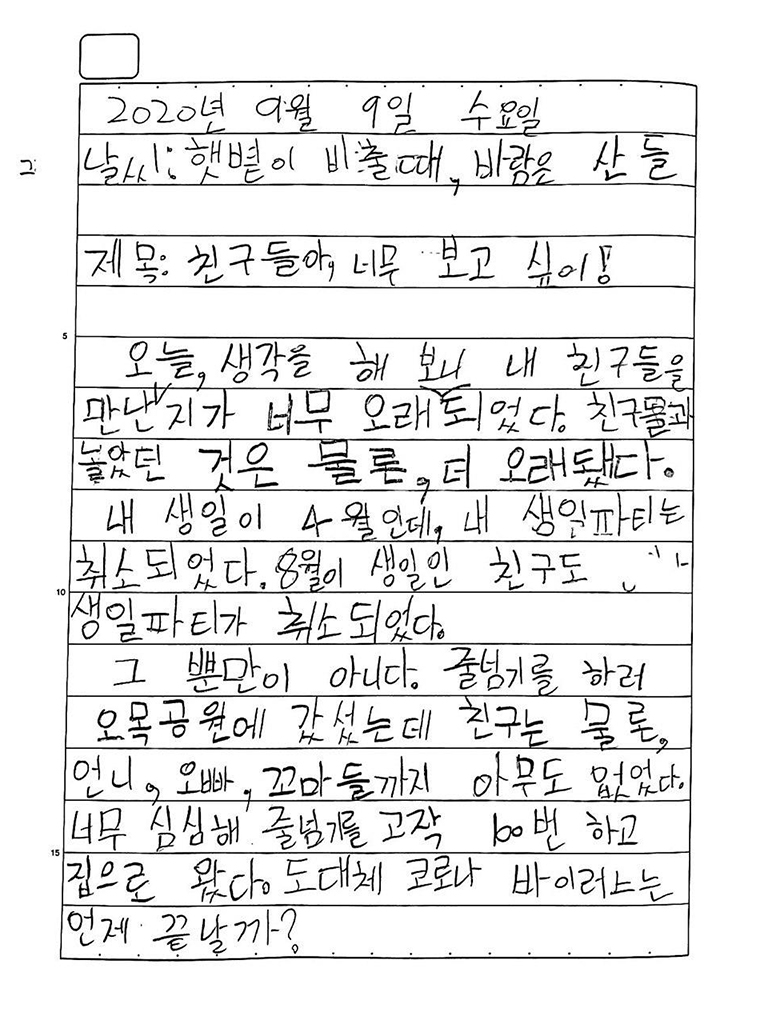 2020년 9월 9일 수요일
그
날씨: 햇볕이 비출때, 바람은 산들
제목: 친구들아, 너무 보고 싶어!
5
오늘, 생각을 해 보니 내 친구들을
만난지가 너무 오래되었다. 친구들과
놀았던 것은 물론, 더 오래됐다.
내 생일이 4월인데, 내 생일파티는
취소되었다. 8월이 생일인 친구도
10
생일파티가 취소되었다.
그 뿐만이 아니다. 줄넘기를 하러
오목공원에 갔섰는데 친구는 물론,
언니, 오빠, 꼬마들까지 아무도 없었다.
너무 심심해 줄넘기를 고작 100번 하고
15
집으로 왔다. 도대체 코로나 바이러스는
언제 끝날까?